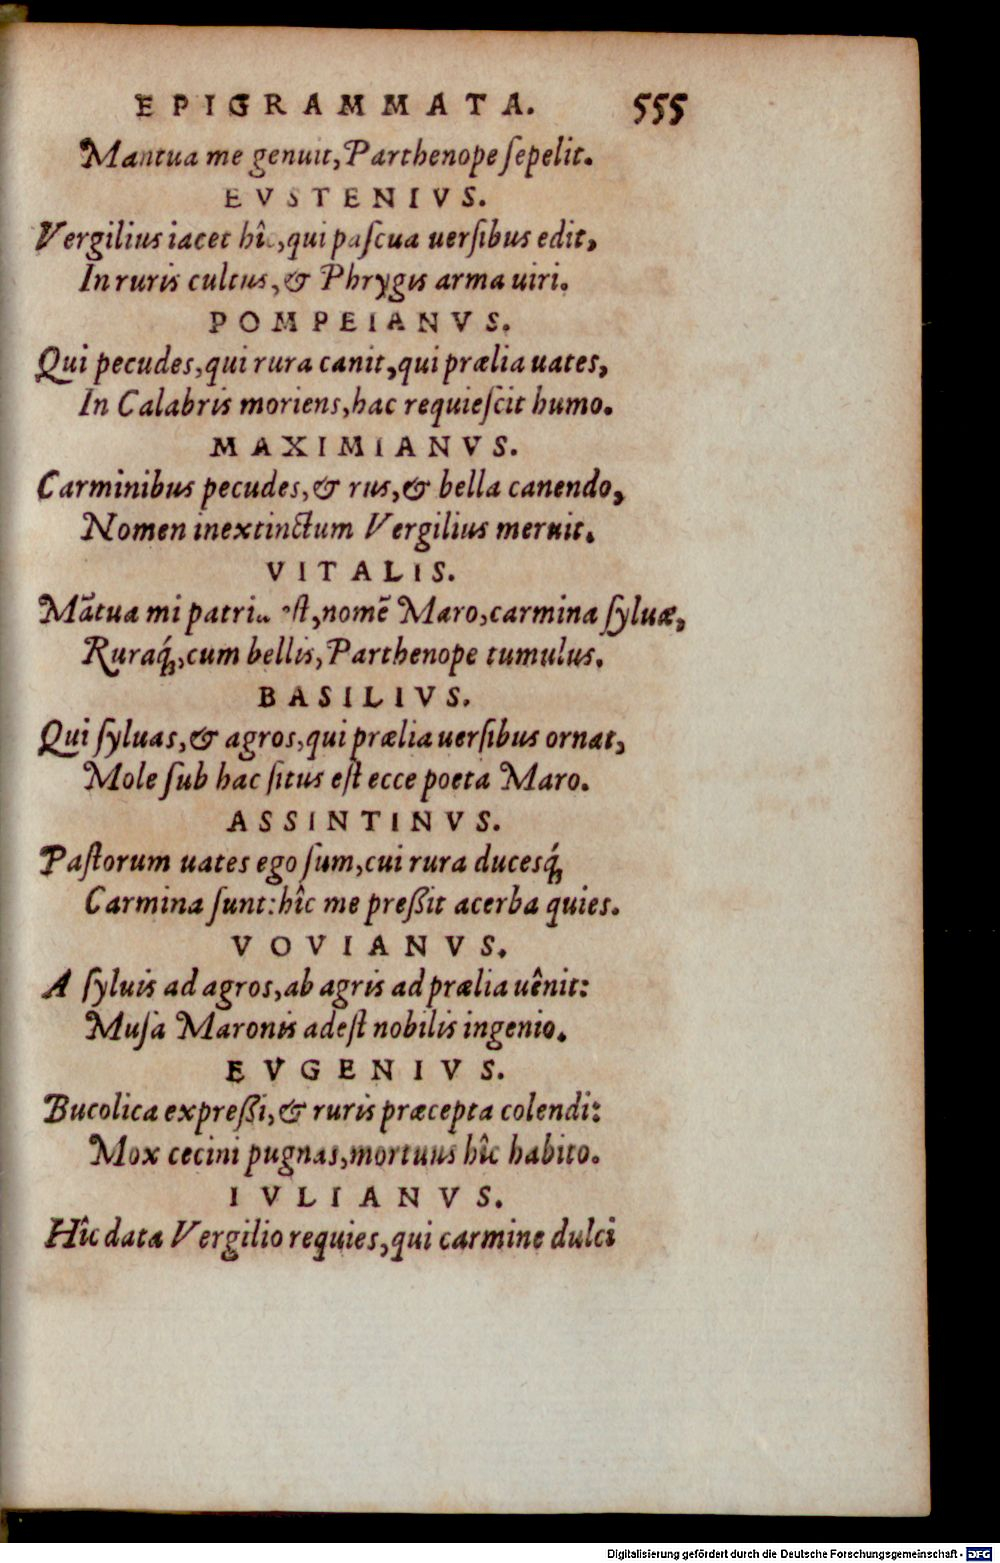 EPIGRAMMATA. 555
Mantua me genuit, Parthenope ſepelit.
EVSTENIVS.
Vergilius iacet hîc, qui paſcua uerſibus edit,
In ruris cultus, & Phrygis arma uiri.
POMPEIANVS.
Qui pecudes, qui rura canit, qui prælia uates,
In Calabris moriens, hac requieſcit humo.
MAXIMIANVS.
Carminibus pecudes, & rus, & bella canendo,
Nomen inextinctum Vergilius meruit.
VITALIS.
Mãtua mi patria eſt, nomẽ Maro, carmina ſyluæ,
Ruraq́;, cum bellis, Parthenope tumulus.
BASILIVS.
Qui ſyluas, & agros, qui prælia uerſibus ornat,
Mole ſub hac ſitus eſt ecce poeta Maro.
ASSINTINVS.
Paſtorum uates ego ſum, cui rura ducesq́;
Carmina ſunt: hîc me preßit acerba quies.
VOVIANVS.
A ſyluis ad agros, ab agris ad prælia uênit:
Muſa Maronis adeſt nobilis ingenio.
EVGENIVS.
Bucolica expreßi, & ruris præcepta colendi:
Mox cecini pugnas, mortuus hîc habito.
IVLIANVS.
Hîc data Vergilio requies, qui carmine dulci
Digitalisierung gefördert durch die Deutsche Forschungsgemeinschaft - DFG